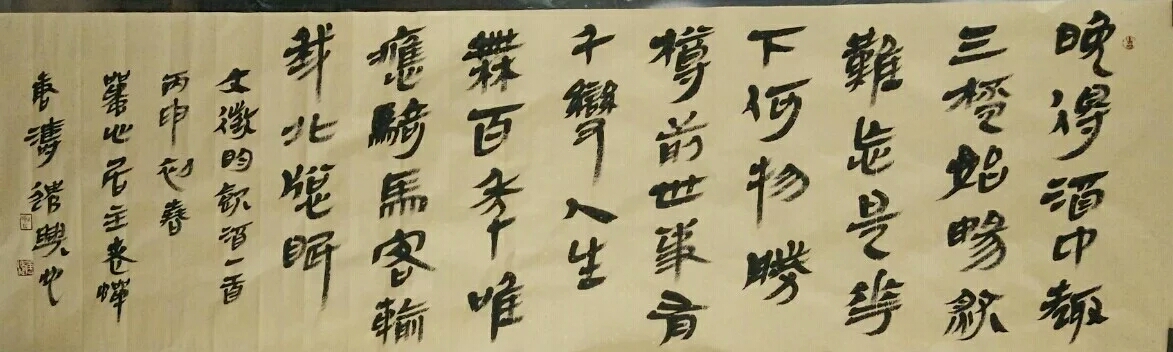 晚得酒中趣
三桮始暢然
難忘是華
下何物勝
樽前世事有
千變人生
無百年唯
應騎馬客輸
我北窗眠
文徵明飲酒一首
丙申初春
心居主
濤興也